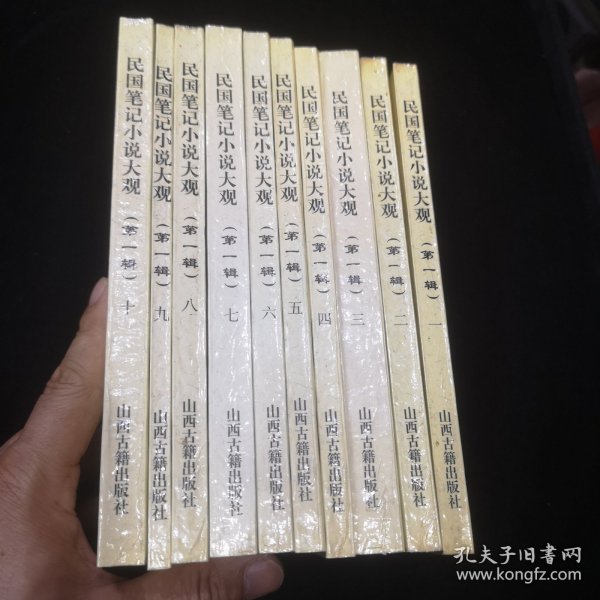 民国笔记小说大观（第一辑）十 山西古籍出版社
民国笔记小说大观（第一辑）九 山西古籍出版社
民国笔记小说大观（第一辑）八 山西古籍出版社
民国笔记小说大观（第一辑）七 山西古籍出版社
民国笔记小说大观（第一辑）六 山西古籍出版社
民国笔记小说大观（第一辑）五 山西古籍出版社
民国笔记小说大观（第一辑）四 山西古籍出版社
民国笔记小说大观（第一辑）三 山西古籍出版社
民国笔记小说大观（第一辑）二 山西古籍出版社
民国笔记小说大观（第一辑）一 山西古籍出版社
孔夫子旧书网
www.kongfz.com